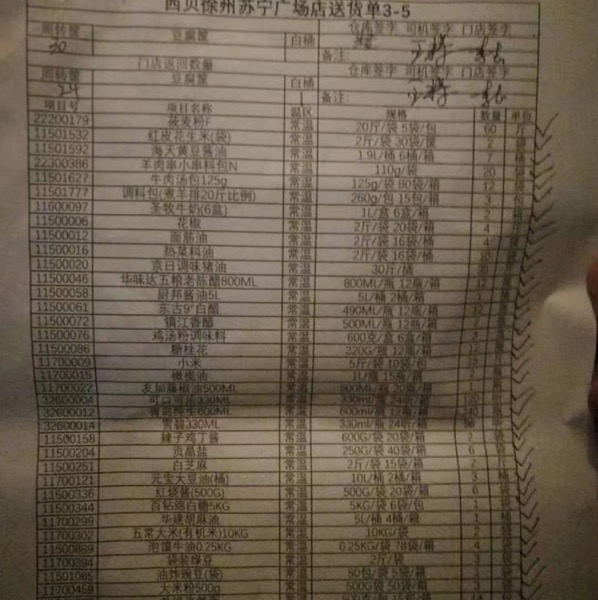 西贝徐州苏宁广场店送货单3-5
周转筐 豆腐筐 白桶 仓库签字 司机签字 门店签字
30 备注
门店返回数量 仓库签字 司机签字 门店签字
周转筐 豆腐筐 白桶
24 备注
项目号 项目名称 温区 规格 数量 单位
22200179 莜麦粉F 常温 20斤/袋 5袋/包 60 斤
11501532 红皮花生米(袋) 常温 2斤/袋 30袋/筐 2 袋
11501592 海大黄豆酱油 常温 1.9L/桶 6桶/箱 7 桶
22300386 羊肉串小串料包N 常温 110g/袋 20 袋
11501627 牛肉汤包125g 常温 125g/袋 80袋/箱 12 袋
11501777 调料包(煮羊排20斤比例) 常温 260g/包 15包/箱 3 包
11600097 圣牧牛奶(6盒) 常温 1L/盒 6盒/箱 2 箱
11500006 花椒 常温 2斤/袋 20袋/箱
11500012 面筋油 常温 2斤/袋 16袋/桶 4
11500016 热菜料油 常温 2斤/袋 16袋/桶
11500020 京日调味猪油 常温 30斤/桶
11500046 华味达五粮老陈醋800ML 常温 800ML/瓶 12瓶/箱
11500058 厨邦酱油5L 常温 5L/桶 2桶/箱
11500061 东古9°白醋 常温 490ML/瓶 12瓶/箱 12
11500072 镇江香醋 常温 500ML/瓶 12瓶/箱
11500076 鸡汤粉调味料 常温 600克/盒 6盒/箱
11500086 糖桂花 常温 320G/瓶 12瓶/箱
11700009 小米 常温 5斤/袋 10袋/包
11700015 橄榄油 常温 1L/瓶 15瓶/箱
11700027 友加藤椒油500ML 常温 500ML/瓶 20瓶/箱
32600004 可口可乐330ML 常温 330ml/罐 24听/箱 120 听
32600012 青岛纯生600ML 常温 600ml/瓶 12瓶/箱 240
32600014 雪碧330ML 常温 330ml/罐 24听/箱 96 听
11500158 辣子鸡丁酱 常温 600G/袋 20袋/箱 2 袋
11500204 贡晶盐 常温 250G/袋 40袋/箱 6 袋
11500251 白芝麻 常温 2斤/袋 15袋/箱 2
11700121 元宝大豆油(桶) 常温 10L/桶 2桶/箱 3 桶
11500336 红烧酱(500G) 常温 500G/袋 20袋/箱 6 袋
11500344 百钻绵白糖5KG 常温 5KG/袋 6袋/包 1 袋
11700299 华建胡麻油 常温 5L/桶 4桶/箱 1 桶
11700302 五常大米(有机米)10KG 常温 10KG/袋 2 袋
11500889 泡馍牛油0.25KG 常温 0.25KG/袋 78袋/箱 4 袋
11700394 袋装绿豆 常温 2斤/袋 3
11501085 油炸豌豆(袋) 常温 50包/袋 5袋/箱 1
11700459 大米粉500g 常温 500G/袋 50袋/箱